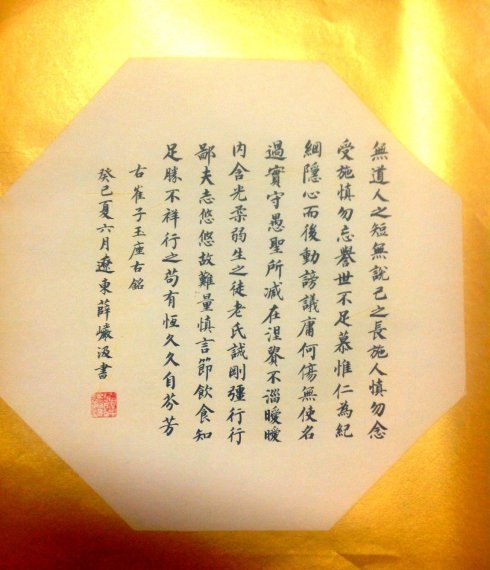 無道人之短無說己之長施人慎勿念
受施慎勿忘譽世不足慕惟仁為紀
綱隱心而後動謗議庸何傷無使名
過實守愚聖所臧在涅貴不淄曖曖
內含光柔弱生之徒老氏誡剛彊行行
鄙夫志悠悠故難量慎言節飲食知
足勝不祥行之苟有恆久久自芬芳
右崔子玉座右銘
癸巳夏六月遼東薛汲書